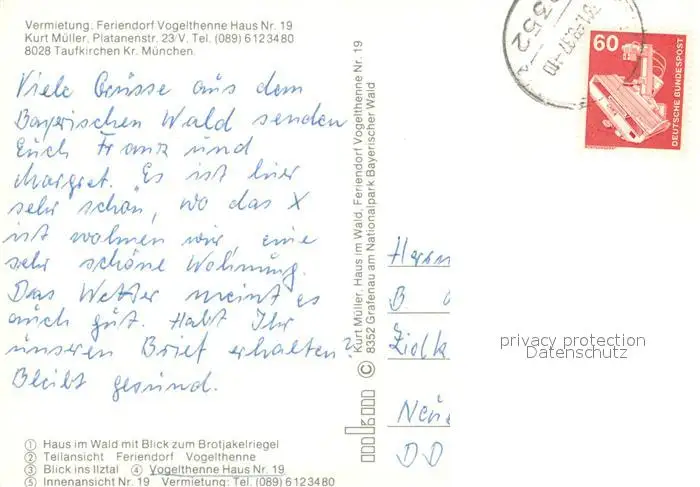 Vermietung: Feriendorf Vogelthenne Haus Nr. 19
Kurt Müller, Platanenstr. 23/V, Tel. (089) 6123480
8028 Taufkirchen Kr. München.
Viele Grüsse aus dem
Bayerischen Wald senden
Euch Franz und
Margret. Es ist hier
sehr schön, wo das X
ist wohnen wir, eine
sehr schöne Wohnung.
Das Wetter meint es
auch gut. Habt Ihr
unseren Brief erhalten?
Bleibt gesund.
① Haus im Wald mit Blick zum Brotjakelriegel
② Teilansicht Feriendorf Vogelthenne
③ Blick ins Ilztal ④ Vogelthenne Haus Nr. 19
⑤ Innenansicht Nr. 19 Vermietung: Tel. (089) 6123480
© Kurt Müller, Haus im Wald, Feriendorf Vogelthenne Nr. 19
8352 Grafenau am Nationalpark Bayerischer Wald
8352
60
DEUTSCHE BUNDESPOST
Herrn
B
Ziolk
Neue
DD
privacy protection
Datenschutz